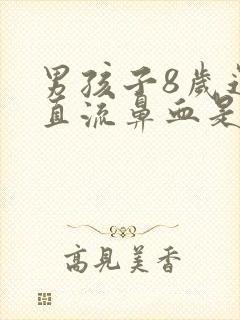 男孩子8歲
直流鼻血是
高見美香